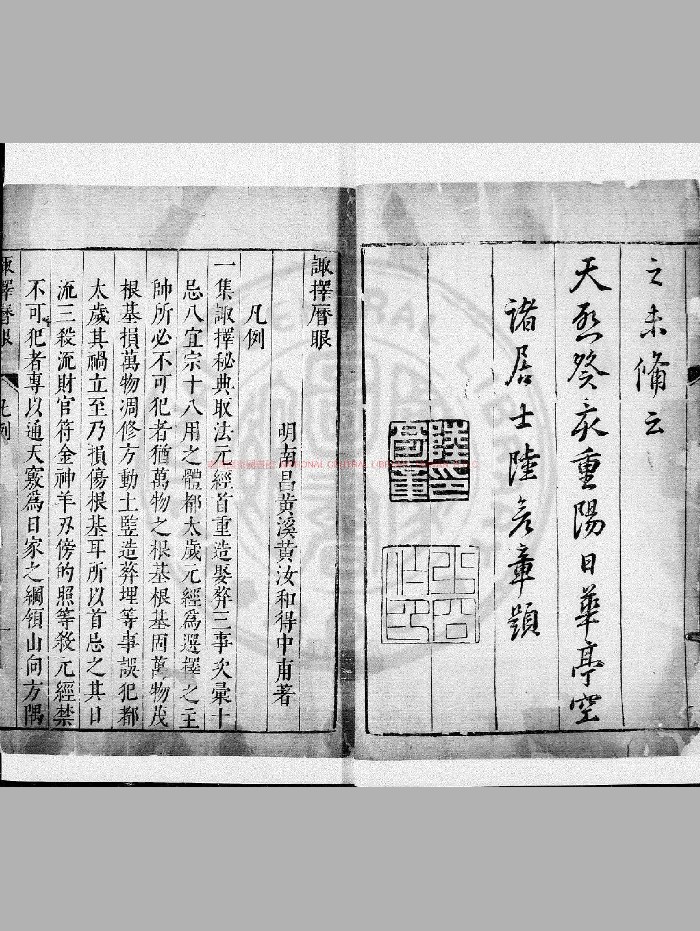 之未備云
天啓癸亥重陽日華亭空
諸居士陸彥章題
陸印
彥章
諏擇曆眼
明南昌黃溪黃汝和得中甫著
凡例
一集諏擇秘典取法元經首重造娶葬三事次彙十
忌八宜宗十八用之體都太歲元經為選擇之主
帥所必不可犯者猶萬物之根基根基固萬物茂
根基損萬物凋修方動土監造葬埋等事誤犯都
太歲其禍立至乃損傷根基耳所以首忌之其日
流三殺流財官符金神羊刃傍的照等殺元經禁
不可犯者專以通天竅為日家之綱領山向方隅
諏擇曆眼
凡例
一
NATIONAL CENTRAL LIBRARY